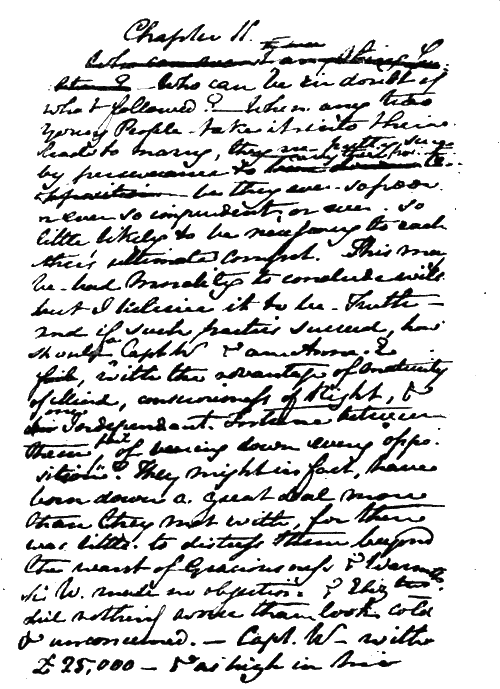 Chapter 11.
Who can be in doubt of
what followed? — When any two
Young People take it into their
heads to marry, they are pretty sure
by perseverance to carry their point —
be they ever so poor
or ever so imprudent, or ever so
little likely to be necessary to each
other's ultimate comfort. This may
be bad Morality to conclude with,
but I beleive it to be Truth —
and if such parties succeed, how
should a Capt. W — & an Anne E —
fail, with the advantage of Maturity
of Mind, consciousness of Right, &
one Independant Fortune between
them, fail of bearing down every oppo-
sition? They might in fact, have
born down a great deal more
than they met with, for there
was little to distress them beyond
the want of Graciousness & Warmth.
Sir W. made no objection, & Eliz:
did nothing worse than look cold
& unconcerned. — Capt. W — with
£25,000 — & as high in his